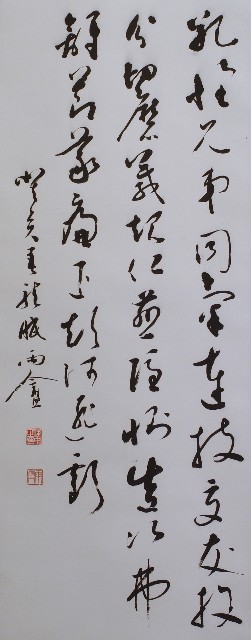 孔懷兄弟同氣連枝交友投
分切磨箴規仁慈隱惻造次弗
離節義廉退顛沛匪虧
癸亥春龍眠雨盦